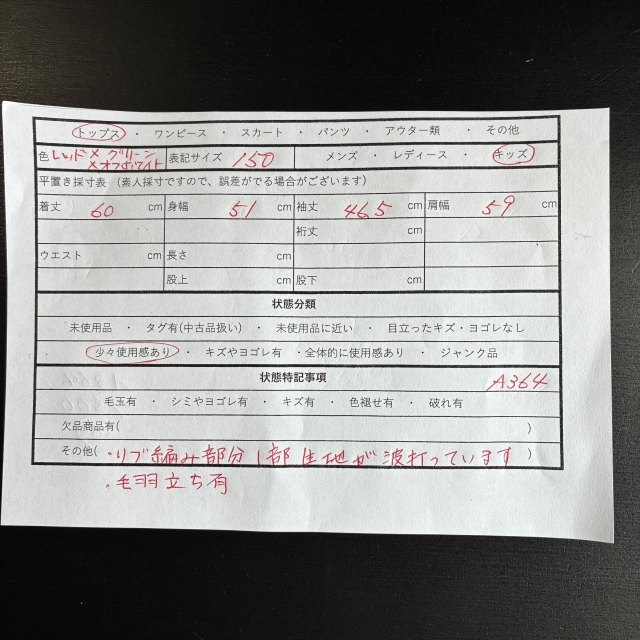 トップス ・ ワンピース ・ スカート ・ パンツ ・ アウター類 ・ その他
色 レッド×グリーン
×オフホワイト
表記サイズ 150
メンズ ・ レディース ・ キッズ
平置き採寸表 （素人採寸ですので、誤差がでる場合がございます）
着丈 60 cm 身幅 51 cm 袖丈 46.5 cm 肩幅 59 cm
裄丈 cm
ウエスト cm 長さ cm
股上 cm 股下 cm
状態分類
未使用品 ・ タグ有(中古品扱い) ・ 未使用品に近い ・ 目立ったキズ・ヨゴレなし
少々使用感あり ・ キズやヨゴレ有 ・全体的に使用感あり ・ ジャンク品
状態特記事項 A364
毛玉有 ・ シミやヨゴレ有 ・ キズ有 ・ 色褪せ有 ・ 破れ有
欠品商品有( )
その他( ・リブ編み部分1部生地が波打っています )
・毛羽立ち有